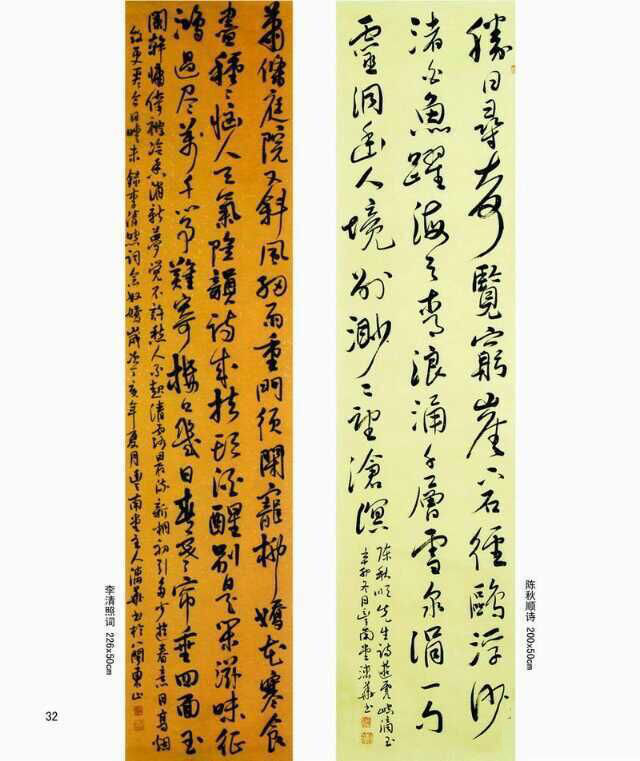 勝日尋奇覽窮崖石徑鷗浮沙
渚白魚躍海天青浪涌千層雪泉涓一勺
靈洞幽人境別渺渺望滄溟
陈秋順先生詩遊嶼滴玉
辛卯冬月南堂華书
陈秋顺诗 200x50cm
蕭條庭院又斜風細雨重門須閉寵柳嬌花寒食
種種惱人天氣險韻詩成扶頭酒醒別是閑滋味征
鴻過盡萬千心事難寄樓上幾日春寒帘垂四面玉
闌幹慵倚被冷香消新夢覺不許愁人不起清露晨流新桐初引多少遊春意日高烟
斂更看今日晴未 錄李清照詞念奴嬌歲次丁亥年夏月南堂主人華书於八閩東山
李清照词 226x50cm
32